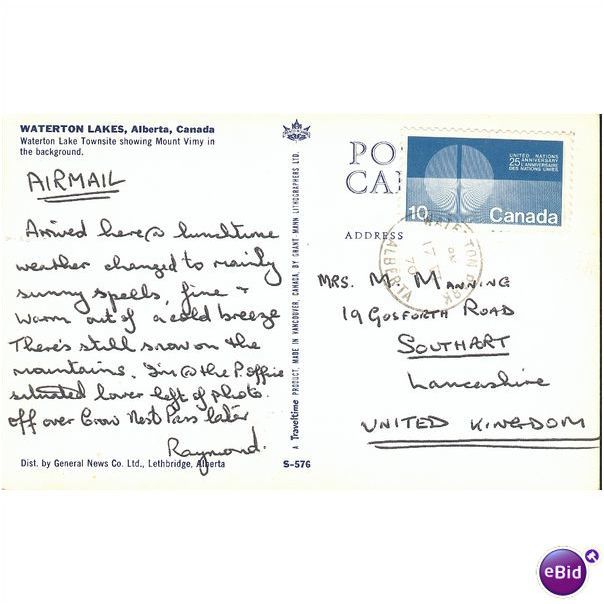 WATERTON LAKES, Alberta, Canada
Waterton Lake Townsite showing Mount Vimy in
the background.
AIRMAIL
Arrived here @ lunchtime
weather changed to mainly
sunny spells, fine +
warm out of a cold breeze
There's still snow on the
mountains. I'm @ the P. office
situated lower left of photo.
off over Crow Nest Pass later
Raymond.
Dist. by General News Co. Ltd., Lethbridge, Alberta
S-576
A Traveltime PRODUCT, MADE IN VANCOUVER, CANADA, BY GRANT-MANN LITHOGRAPHERS LTD.
PO
CA
ADDRESS
UNITED NATIONS
25e ANNIVERSARY
L'ANNIVERSAIRE
DES NATIONS UNIES
10 Canada
WATERTON PARK
17
70
ALBERTA
MRS. M. MANNING
19 GOSFORTH ROAD
SOUTHPORT
Lancashire
UNITED KINGDOM
eBid